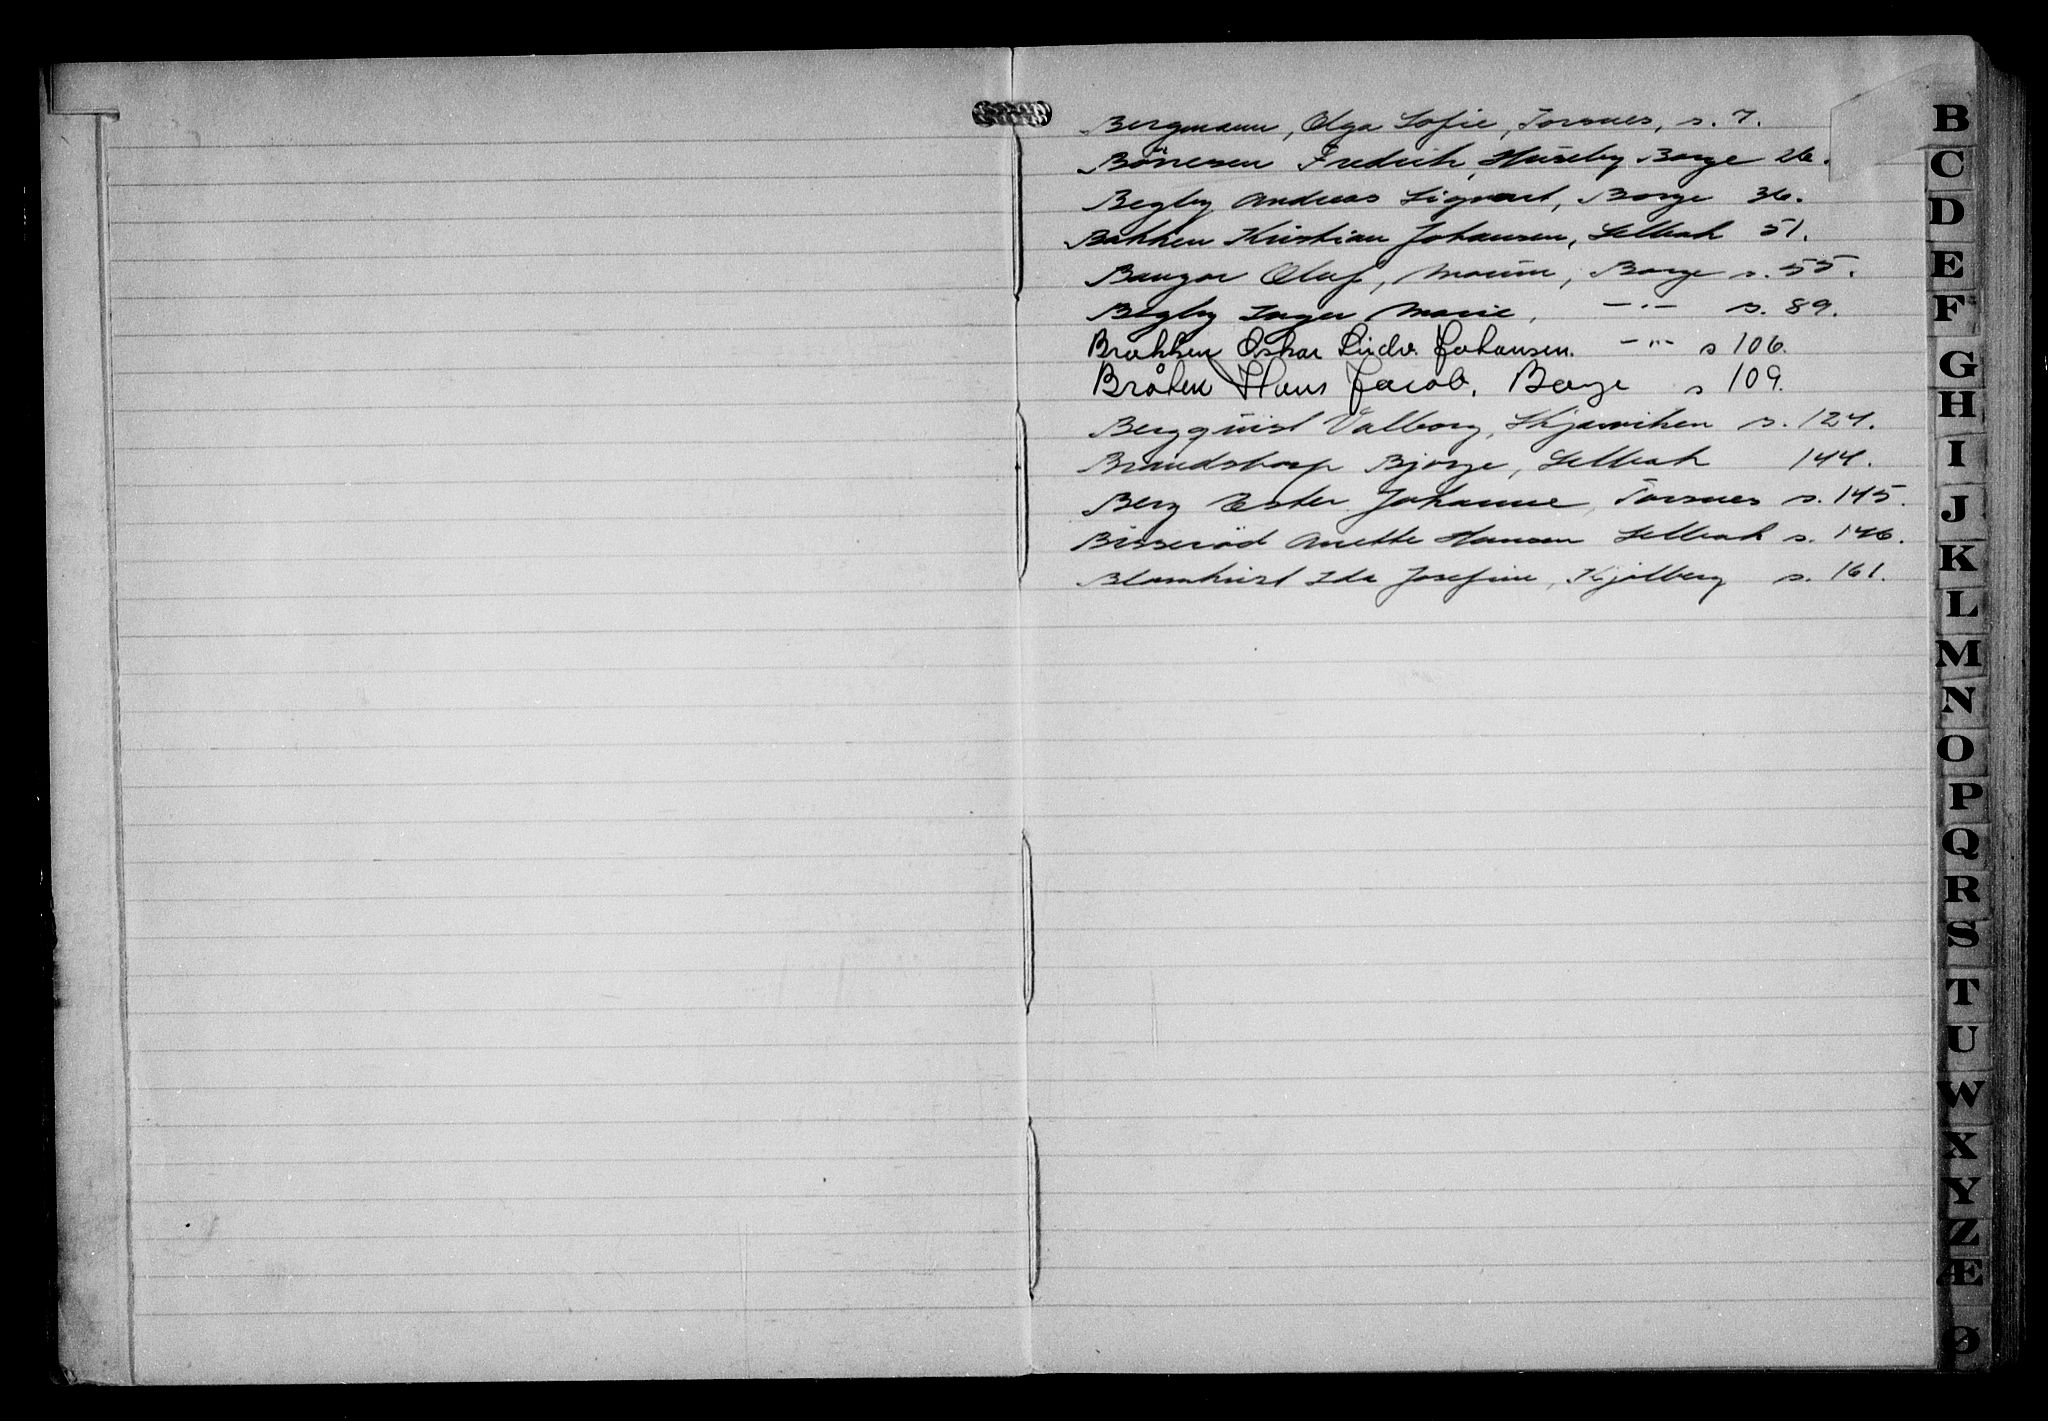 Bergmann, Olga Sofie, Torsnes, s. 7.
Börresen Fredrik, Huseby Borge 26.
Begby Andreas Sigvart, Borge 36.
Bakken Kristian Johansen, Sellbak 51.
Olaf, Moum, Borge s. 55.
Begby Inger Marie, —"— s. 89.
Brakken Oskar Ludv. Johansen. —"— s 106.
Bråten Hans Jacob. Borge s 109.
Bergquist Valborg, Skjærviken s. 124.
Brandstorp Bjorge, Sellbak 144.
Berg Ester Johanne, Torsnes s. 145.
Bisseröd Anette Hansen Sellbak s. 146.
Blomkvist Ida Josefine, Kjølberg s. 161.
B
C
D
E
F
G
H
I
J
K
L
M
N
O
P
Q
R
S
T
U
W
X
Y
Z
Æ
Ø